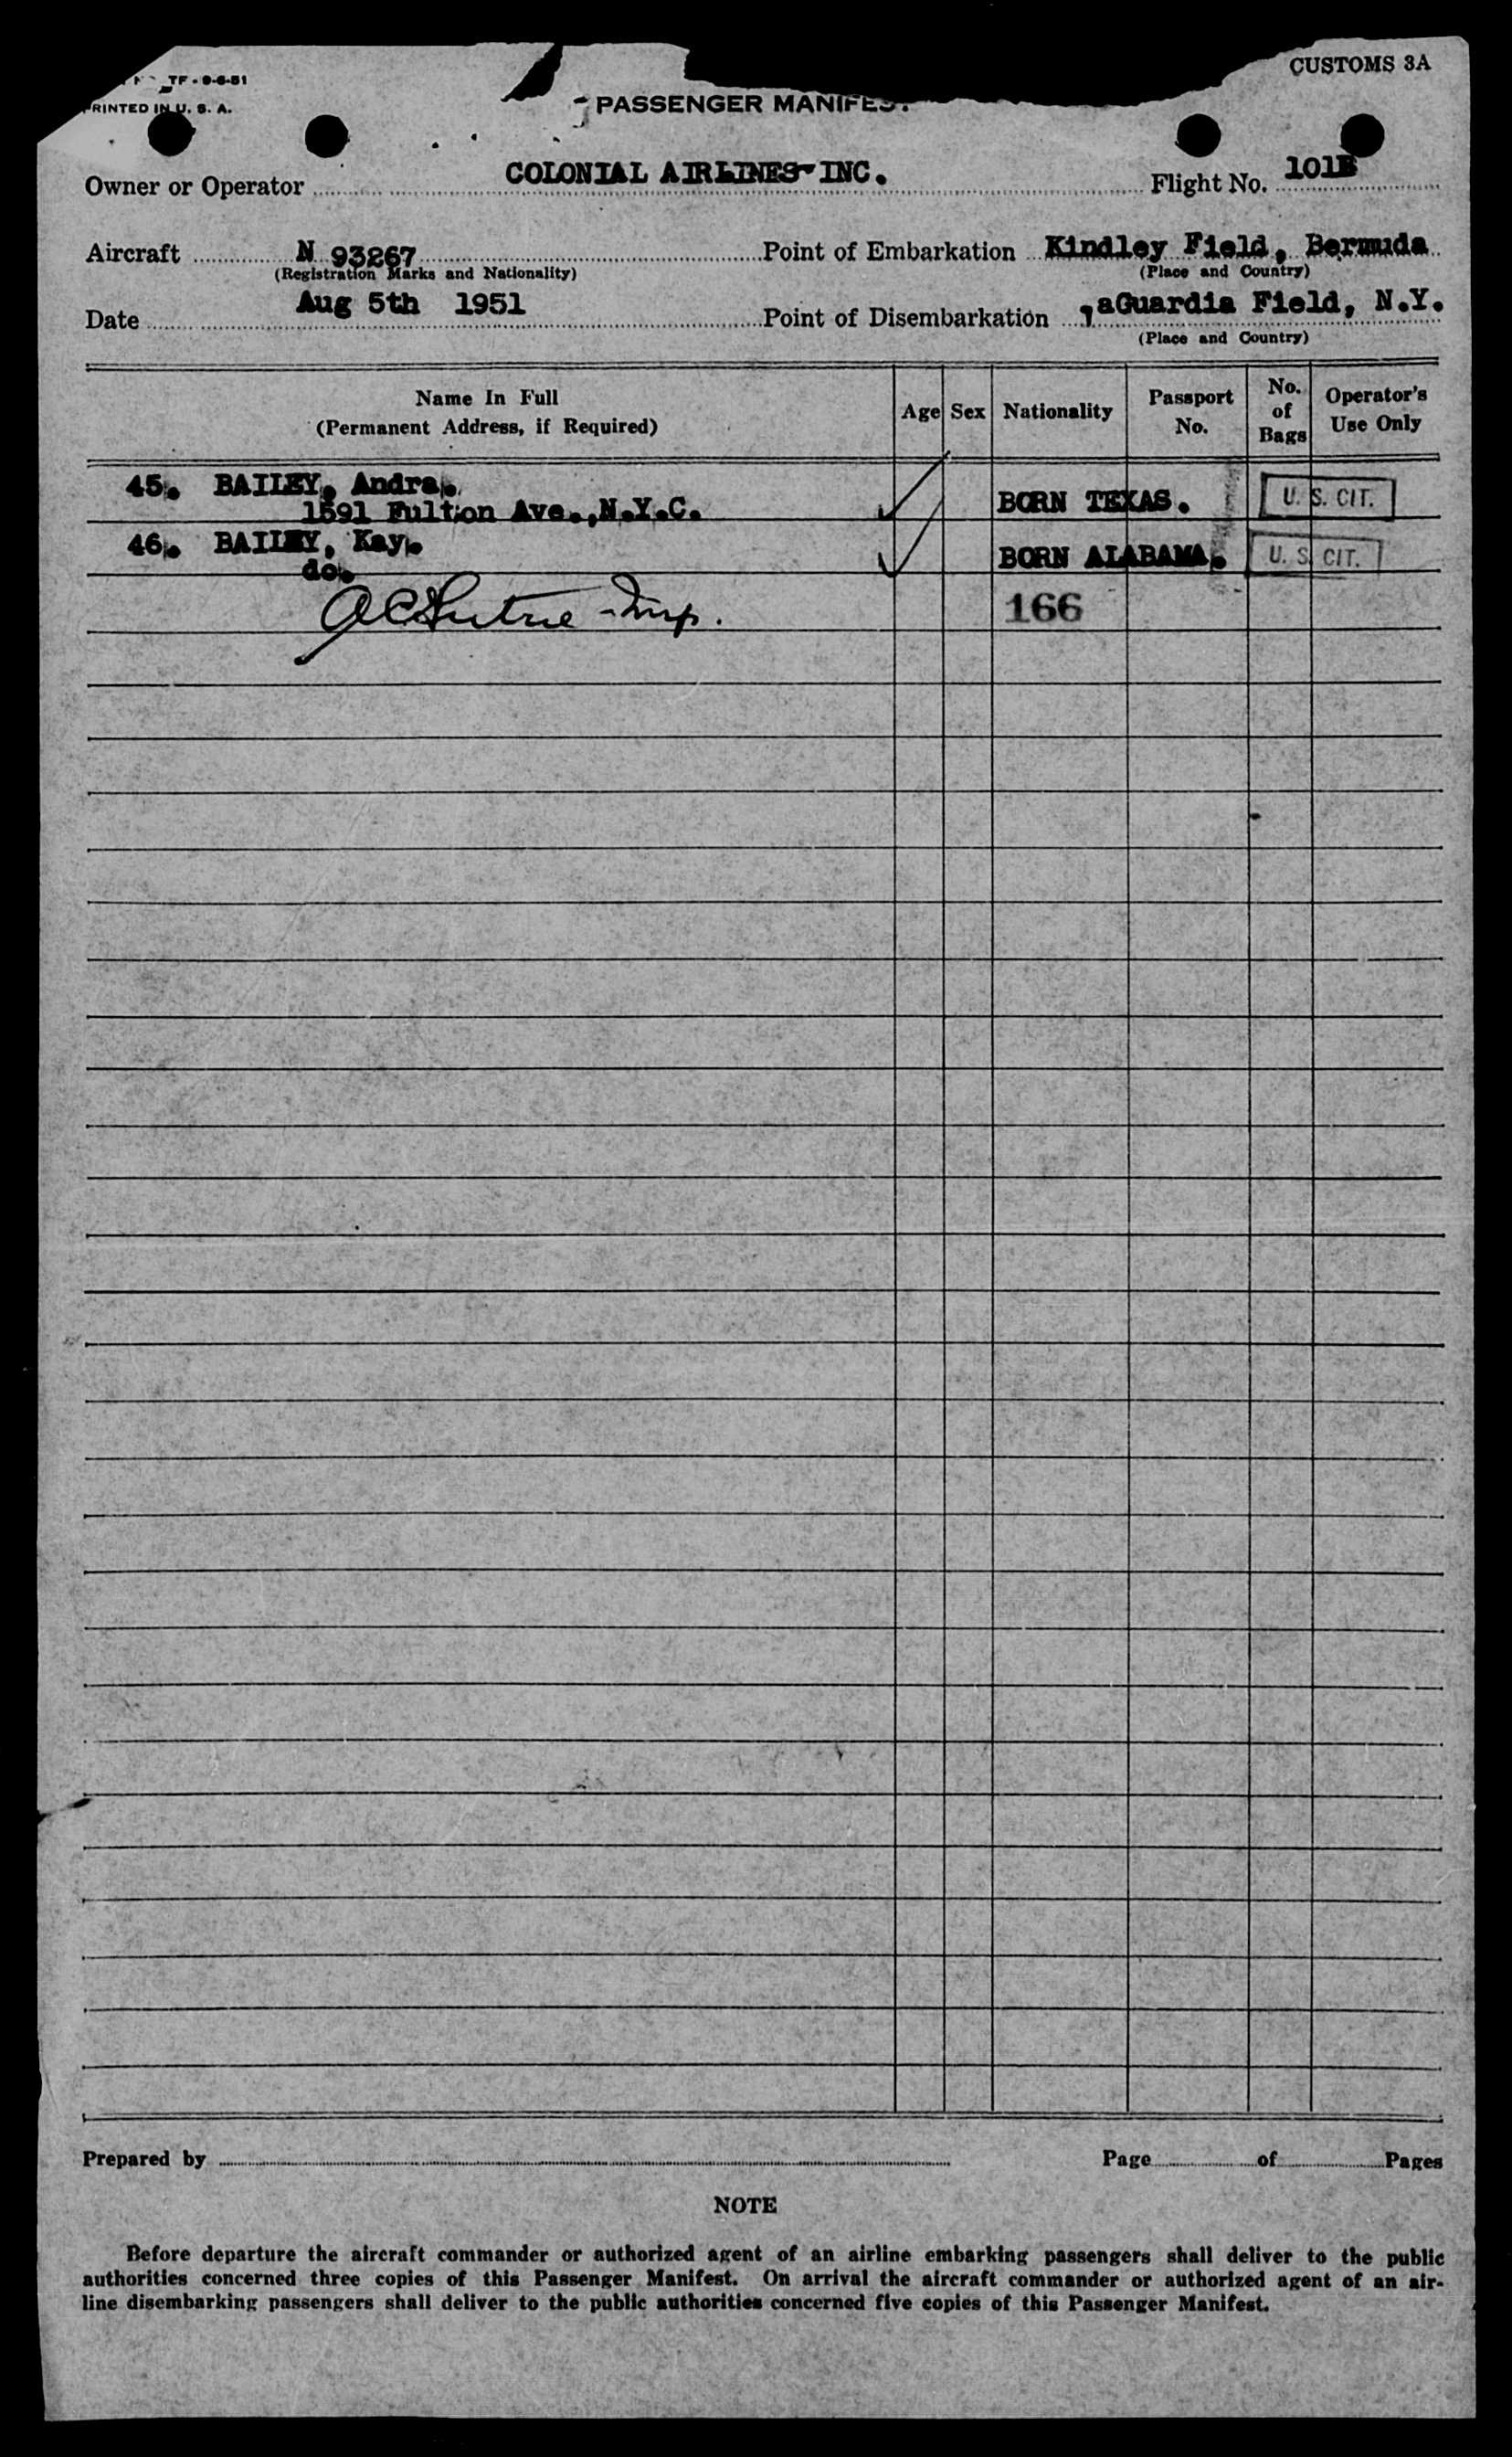 TF - 9-6-51
PRINTED IN U. S. A.
CUSTOMS 3A
PASSENGER MANIFEST
Owner or Operator COLONIAL AIRLINES INC. Flight No. 101B
Aircraft N 93267 Point of Embarkation Kindley Field, Bermuda
(Registration Marks and Nationality) (Place and Country)
Date Aug 5th 1951 Point of Disembarkation LaGuardia Field, N.Y.
(Place and Country)
Name In Full
(Permanent Address, if Required)
Age Sex Nationality Passport No. No. of Bags Operator's Use Only
45. BAILEY, Andra. BORN TEXAS. U. S. CIT.
1591 Fulton Ave.,N.Y.C.
46. BAILEY, Kay. BORN ALABAMA. U. S. CIT.
do.
166
Prepared by Page of Pages
NOTE
Before departure the aircraft commander or authorized agent of an airline embarking passengers shall deliver to the public
authorities concerned three copies of this Passenger Manifest. On arrival the aircraft commander or authorized agent of an air-
line disembarking passengers shall deliver to the public authorities concerned five copies of this Passenger Manifest.